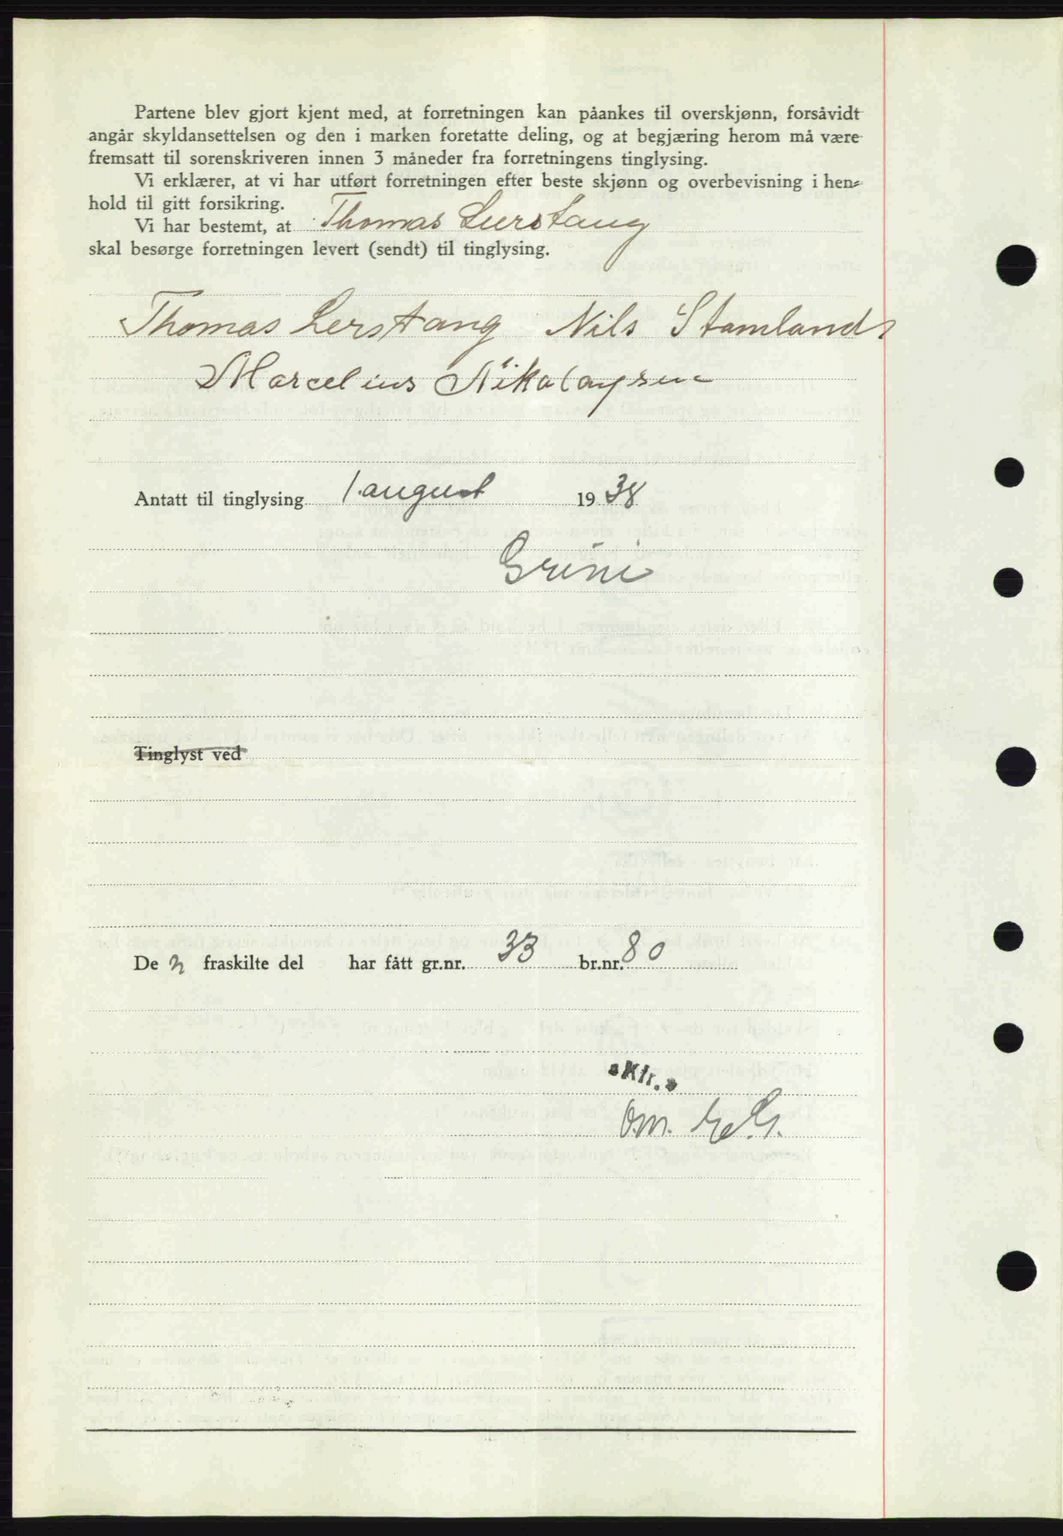 Partene blev gjort kjent med, at forretningen kan påankes til overskjønn, forsåvidt
angår skyldansettelsen og den i marken foretatte deling, og at begjæring herom må være
fremsatt til sorenskriveren innen 3 måneder fra forretningens tinglysing.
Vi erklærer, at vi har utført forretningen efter beste skjønn og overbevisning i hen-
hold til gitt forsikring.
Vi har bestemt, at Thomas Lerstang
skal besørge forretningen levert (sendt) til tinglysing.
Thomas Lerstang Nils Stamland
Marcelius Nikolaysen
Antatt til tinglysing 1. august 1938
Grini
Tinglyst ved
De n fraskilte del har fått gr.nr. 33 br.nr. 80
"Kfr."
Om. E.G.